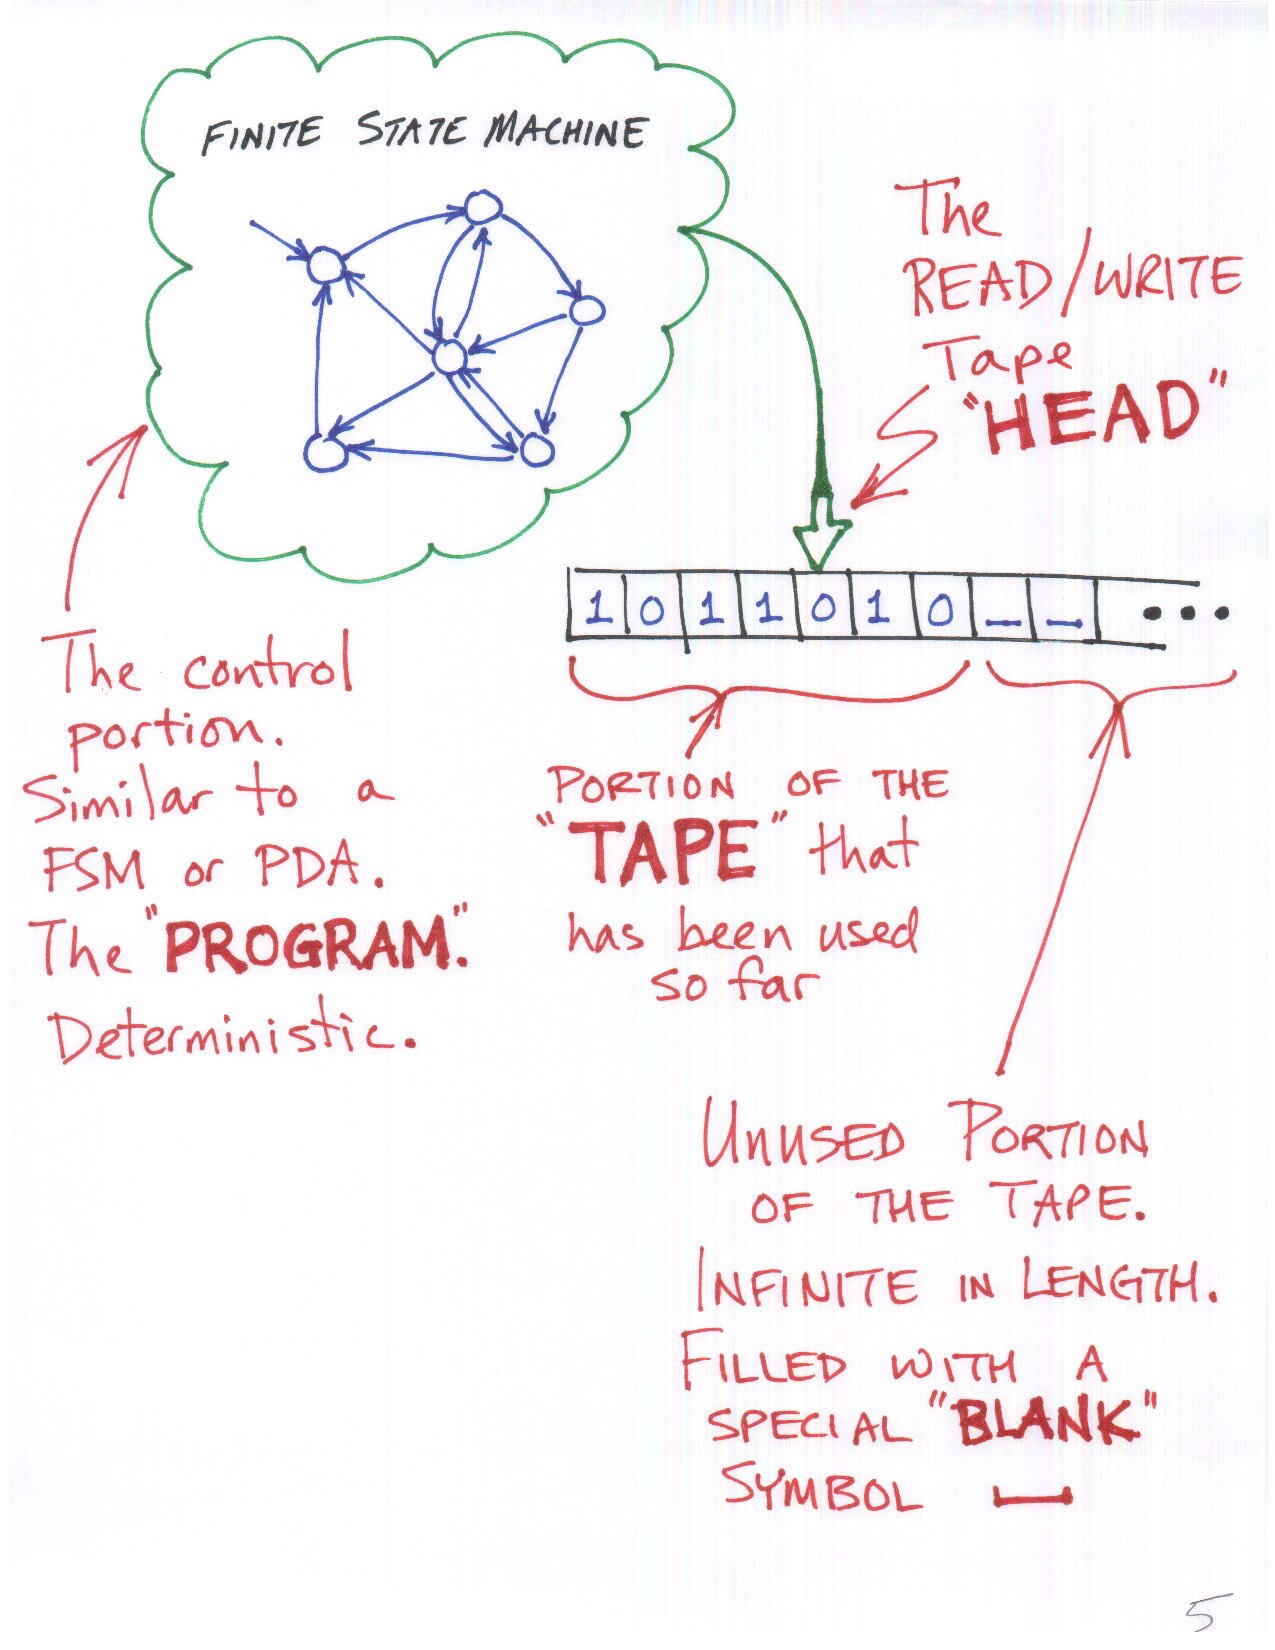 FINITE STATE MACHINE
The
READ/WRITE
Tape
"HEAD"
1 0 1 1 0 1 0 _ _ •••
The control
portion.
Similar to a
FSM or PDA.
The "PROGRAM".
Deterministic.
PORTION OF THE
"TAPE" that
has been used
so far
UNUSED PORTION
OF THE TAPE.
INFINITE IN LENGTH.
FILLED WITH A
SPECIAL "BLANK"
SYMBOL ⎵
5